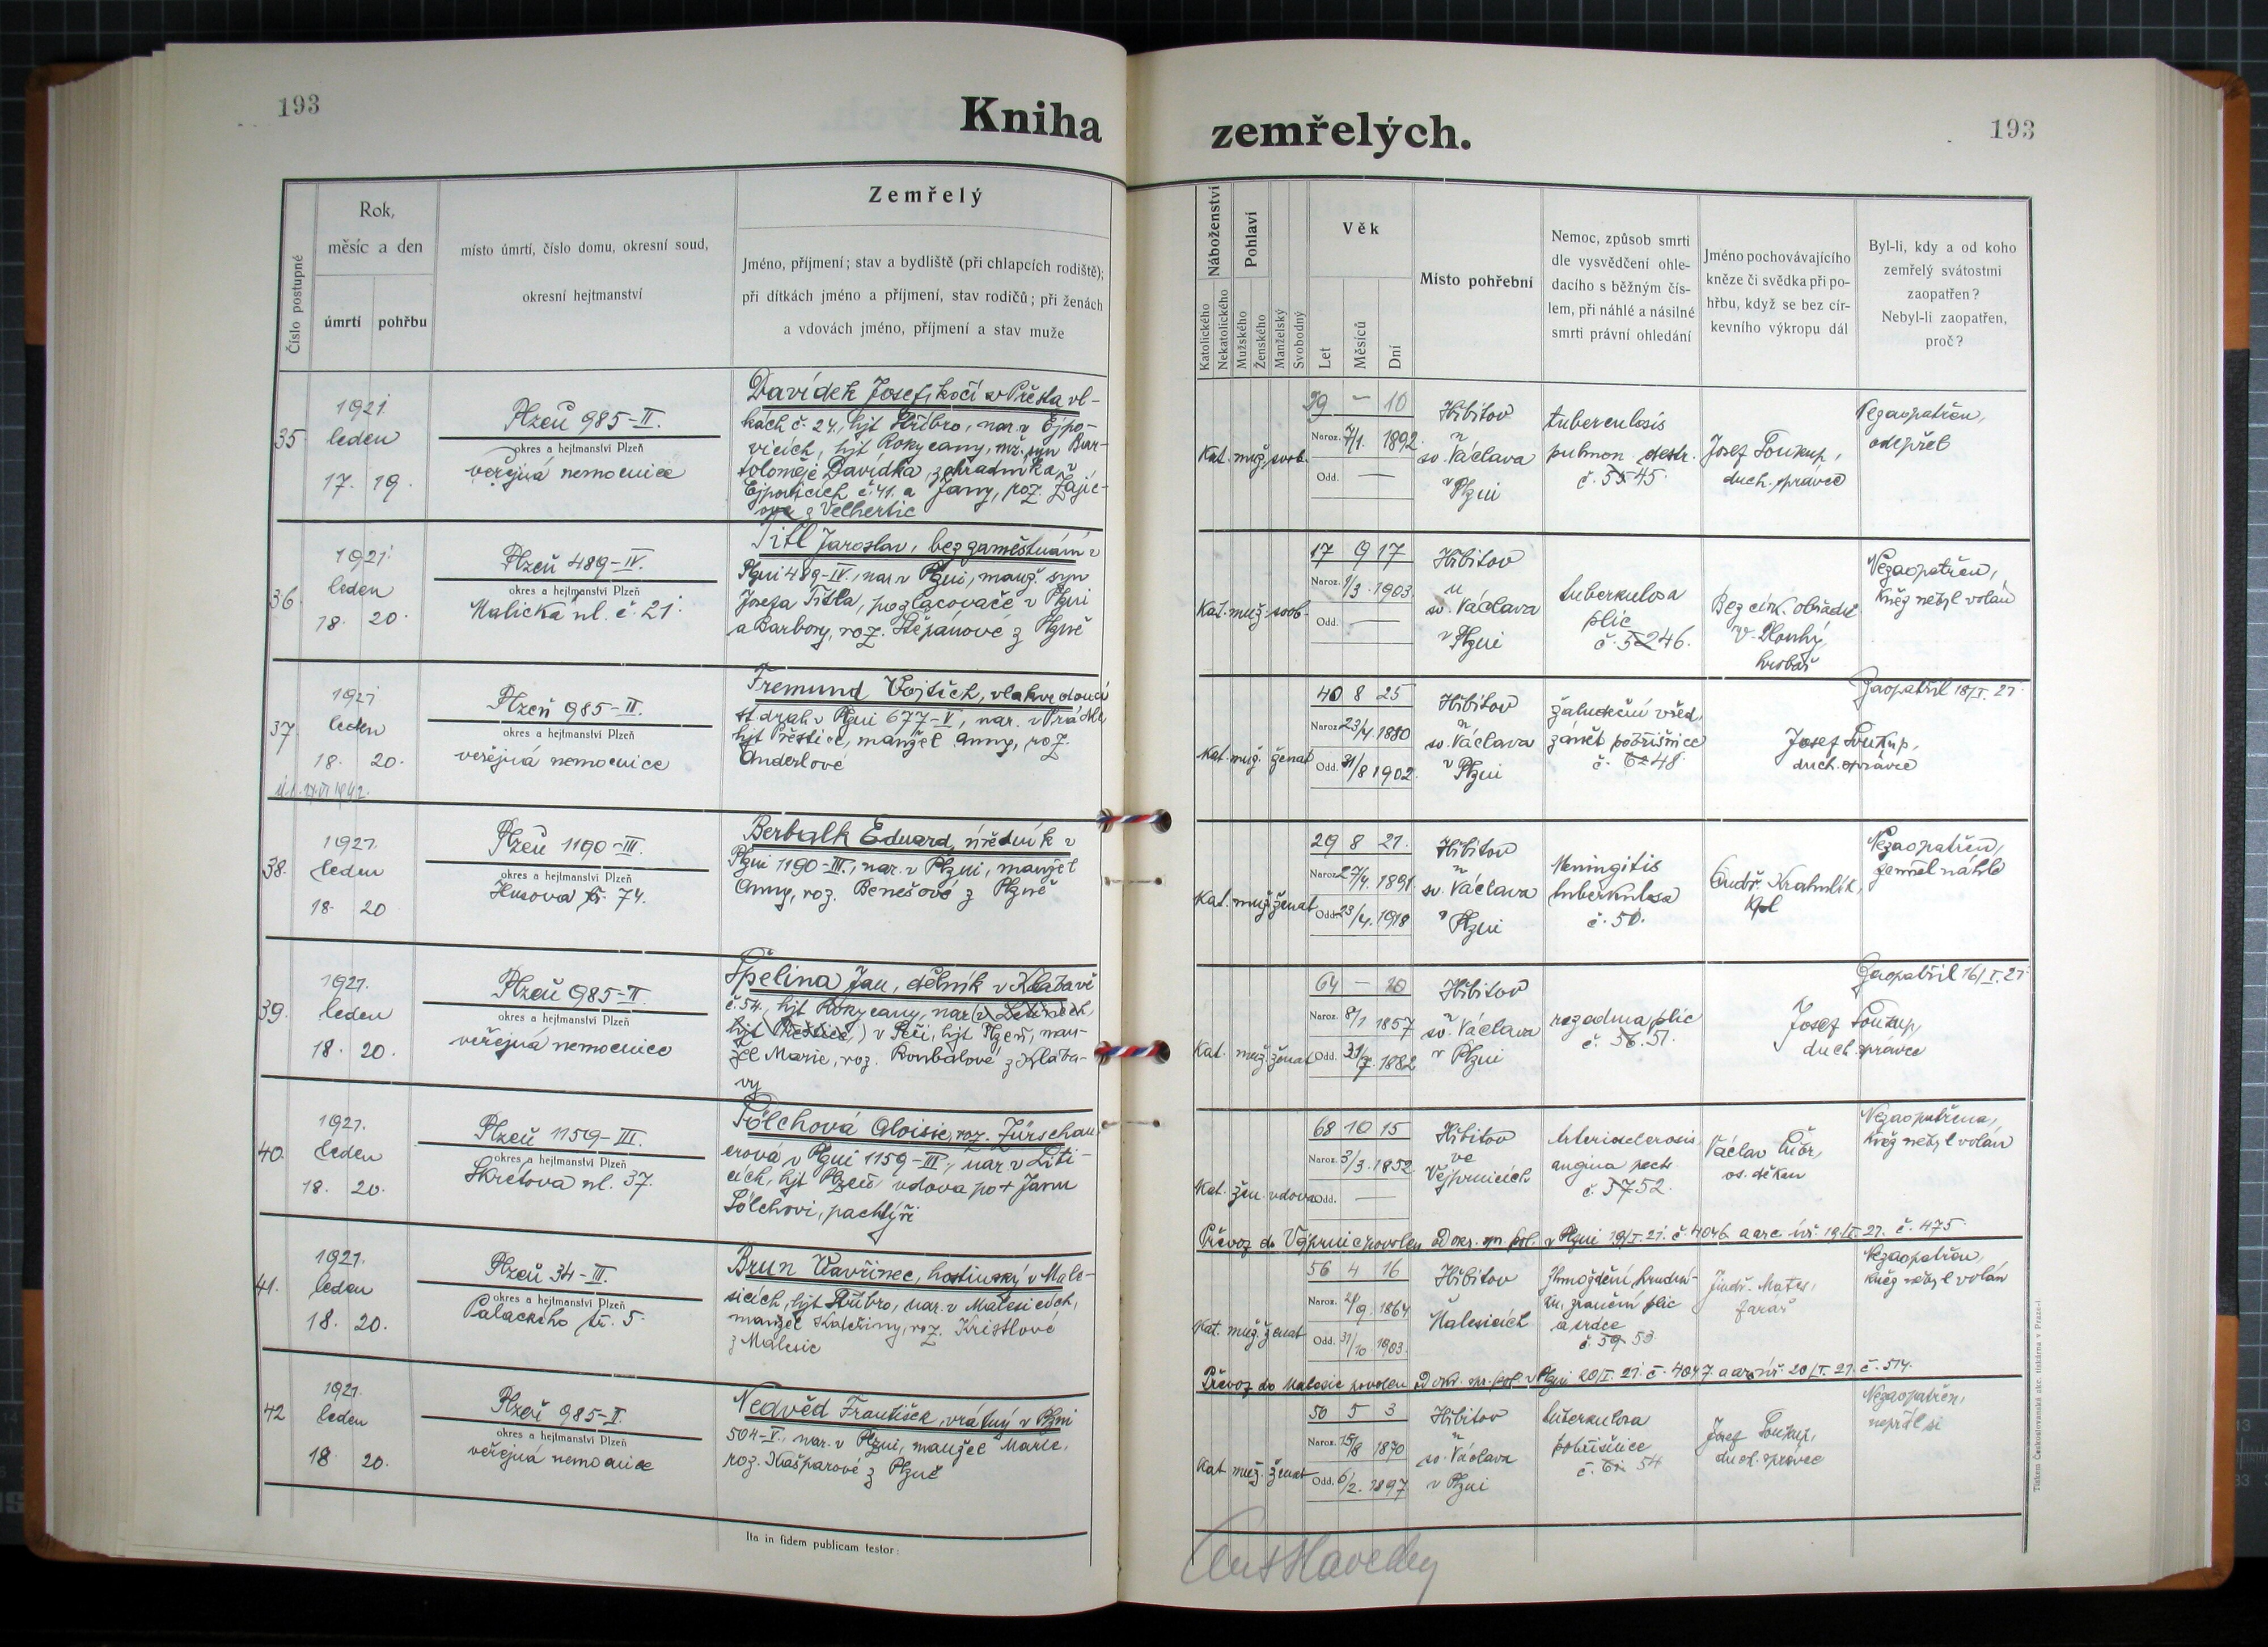 193
Kniha
zemřelých.
193
Číslo postupné
Rok,
měsíc a den
úmrtí
pohřbu
místo úmrtí, číslo domu, okresní soud,
okresní hejtmanství
Zemřelý
Jméno, příjmení; stav a bydliště (při chlapcích rodiště);
při dítkách jméno a příjmení, stav rodičů; při ženách
a vdovách jméno, příjmení a stav muže
Náboženství
Katolického
Nekatolického
Pohlaví
Mužského
Ženského
Manželský
Svobodný
Věk
Let
Měsíců
Dní
Místo pohřební
Nemoc, způsob smrti
dle vysvědčení ohle-
dacího s běžným čís-
lem, při náhlé a násilné
smrti právní ohledání
Jméno pochovávajícího
kněze či svědka při po-
hřbu, když se bez cír-
kevního výkropu dál
Byl-li, kdy a od koho
zemřelý svátostmi
zaopatřen?
Nebyl-li zaopatřen,
proč?
35
1921
leden
17. 19.
Plzeň 985-II.
okres a hejtmanství Plzeň
veřejná nemocnice
Davídek Josef, kočí v Přestavl-
kách č. 24, hjt Stříbro, nar. v Ejpo-
vicích, hjt Rokycany, mž. syn Bar-
toloměje Davídka, zahradníka v
Ejpovicích č. 41. a Jany, roz. Zajíc-
ové z Velhartic
Kat. muž. svob.
29 – 10
Naroz. 7/1. 1892.
Odd. —
Hřbitov
u
sv. Václava
v Plzni
tuberculosis
pulmon. destr.
č. 45.
Josef Soukup,
duch. správce
Nezaopatřen,
odepřel
36.
1921
leden
18. 20.
Plzeň 489-IV.
okres a hejtmanství Plzeň
Malická ul. č. 21.
Titl Jaroslav, bez zaměstnání v
Plzni 489-IV., nar. v Plzni, manž. syn
Josefa Titla, pozlacovače v Plzni
a Barbory, roz. Štěpánové z Plzně
Kat. muž. svob.
17 9 17
Naroz. 1/3. 1903.
Odd. —
Hřbitov
u
sv. Václava
v Plzni
tuberkulosa
plic
č. 46.
Bez círk. obřadu
V. Dlouhý,
hrobař
Nezaopatřen,
kněz nebyl volán
37.
1921
leden
18. 20.
Plzeň 985-II.
okres a hejtmanství Plzeň
veřejná nemocnice
Fremund Vojtěch, vlakvedoucí
st. drah v Plzni 677-V, nar. v
hjt Přeštice, manžel Anny, roz.
Anderlové
Kat. muž. ženat
40 8 25
Naroz. 23/4. 1880
Odd. 31/8 1902.
Hřbitov
u
sv. Václava
v Plzni
žaludeční vřed,
zánět pobřišnice
č. 48
Josef Soukup,
duch. správce
Zaopatřil 18/I. 21.
38.
1921.
leden
18. 20
Plzeň 1190-III.
okres a hejtmanství Plzeň
Husova tř. 74.
Berbalk Eduard, úředník v
Plzni 1190-III., nar. v Plzni, manžel
Anny, roz. Benešové z Plzně
Kat. muž. ženat
29 8 21.
Naroz. 27/4. 1891.
Odd. 23/4. 1918
Hřbitov
u
sv. Václava
v Plzni
Meningitis
tuberkulosa
č. 50.
Ondř. Krahulík,
kpl
Nezaopatřen,
zemřel náhle
39.
1921.
leden
18. 20.
Plzeň 985-II.
okres a hejtmanství Plzeň
veřejná nemocnice
Špelina Jan, dělník v Klabavě
č. 54, hjt Rokycany, nar.
hjt Přeštice,) v hjt Plzeň, man-
žel Marie, roz. Roubalové z Klaba-
vy
Kat. muž. ženat
64 – 10
Naroz. 8/1 1857
Odd. 31/7. 1882
Hřbitov
u
sv. Václava
v Plzni
rozedma plic
č. 51.
Josef Soukup,
duch. správce
Zaopatřil 16/I. 21.
40.
1921.
leden
18. 20.
Plzeň 1159-III.
okres a hejtmanství Plzeň
Škrétova ul. 37.
Pölchová Aloisie, roz. Zürschau-
erová v Plzni 1159-III., nar. v Liti-
cích, hjt Plzeň, vdova po + Janu
Pölchovi, pachtýři
Kat. žen. vdova
68 10 15
Naroz. 3/3. 1852.
Odd. —
Hřbitov
ve
Vejprnicích
Arteriosclerosis,
angina pect.
č. 52.
Václav Čubr,
os. děkan
Nezaopatřena,
kněz nebyl volán
Převoz do Vejprnic povolen Od okr. sp. pol. v Plzni 19/I. 21. č. 4046 a arc. úř. 19/I. 21. č. 475.
41.
1921.
leden
18. 20.
Plzeň 34-III.
okres a hejtmanství Plzeň
Palackého tř. 5.
Brun Vavřinec, hostinský v Male-
sicích, hjt Stříbro, nar. v Malesicích,
manžel Kateřiny, roz. Kristlové
z Malesic
Kat. muž. ženat
56 4 16
Naroz. 2/9. 1864
Odd. 31/10. 1903.
Hřbitov
v
Malesicích
Zhmoždění hrudní-
ku, zranění plic
a srdce
č. 53
Jindř. Mates,
farář
Nezaopatřen,
kněz nebyl volán
Převoz do Malesic povolen Od okr. sp. pol. v Plzni 20/I. 21. č. 4047. a arc. úř. 20/I. 21. č. 514.
42
1921.
leden
18. 20.
Plzeň 985-II.
okres a hejtmanství Plzeň
veřejná nemocnice
Nedvěd František, vrátný v Plzni
504-V., nar. v Plzni, manžel Marie,
roz. Kašparové z Plzně
Kat. muž. ženat
50 5 3
Naroz. 15/8 1870
Odd. 6/2. 1897.
Hřbitov
u
sv. Václava
v Plzni
tuberkulosa
pobřišnice
č. 54
Josef Soukup,
duch. správce
Nezaopatřen,
nepřál si
Ita in fidem publicam testor:
Tiskem Československé akc. tiskárna v Praze-I